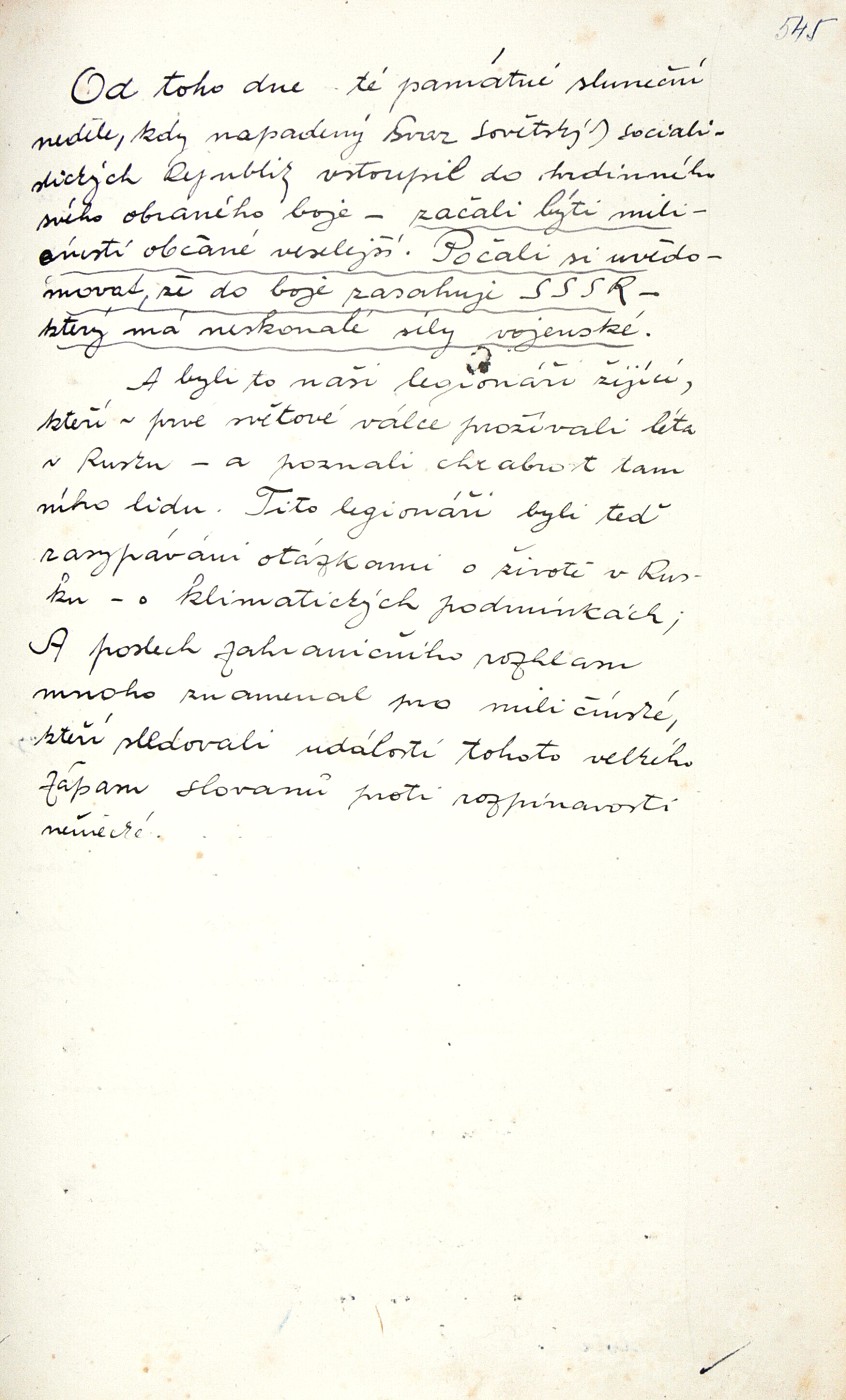 545
Od toho dne té památné sluneční
neděle, kdy napadený Svaz Sovětský) sociali-
stických Republik vstoupil do hrdinného
svého obraného boje – začali býti mili-
čínští občané veselejší. Počali si uvědo-
movat, že do boje zasahuje SSSR –
který má neskonalé síly vojenské.
A byli to naši legionáři žijící,
kteří v prve světové válce prožívali léta
v Rusku – a poznali chrabrost tam
ního lidu. Tito legionáři byli teď
zasypáváni otázkami o životě v Rus-
ku – o klimatických podmínkách;
A poslech zahraničního rozhlasu
mnoho znamenal pro miličínské,
kteří sledovali události tohoto velkého
zápasu slovanů proti rozpínavosti
německé.